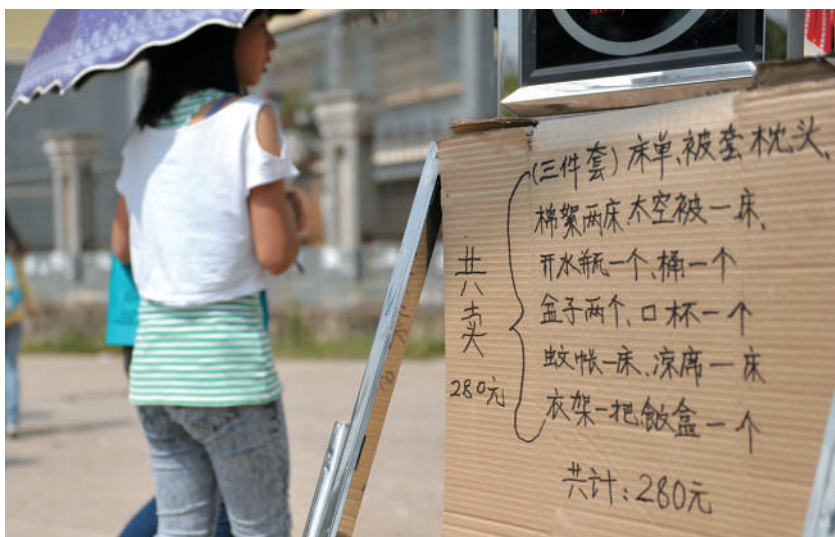 (三件套)床单、被套枕头、
棉絮两床太空被一床、
开水瓶一个、桶一个
盆子两个、口杯一个
蚊帐一床、凉席一床
衣架一把、饭盒一个
共计:280元
共卖
280元